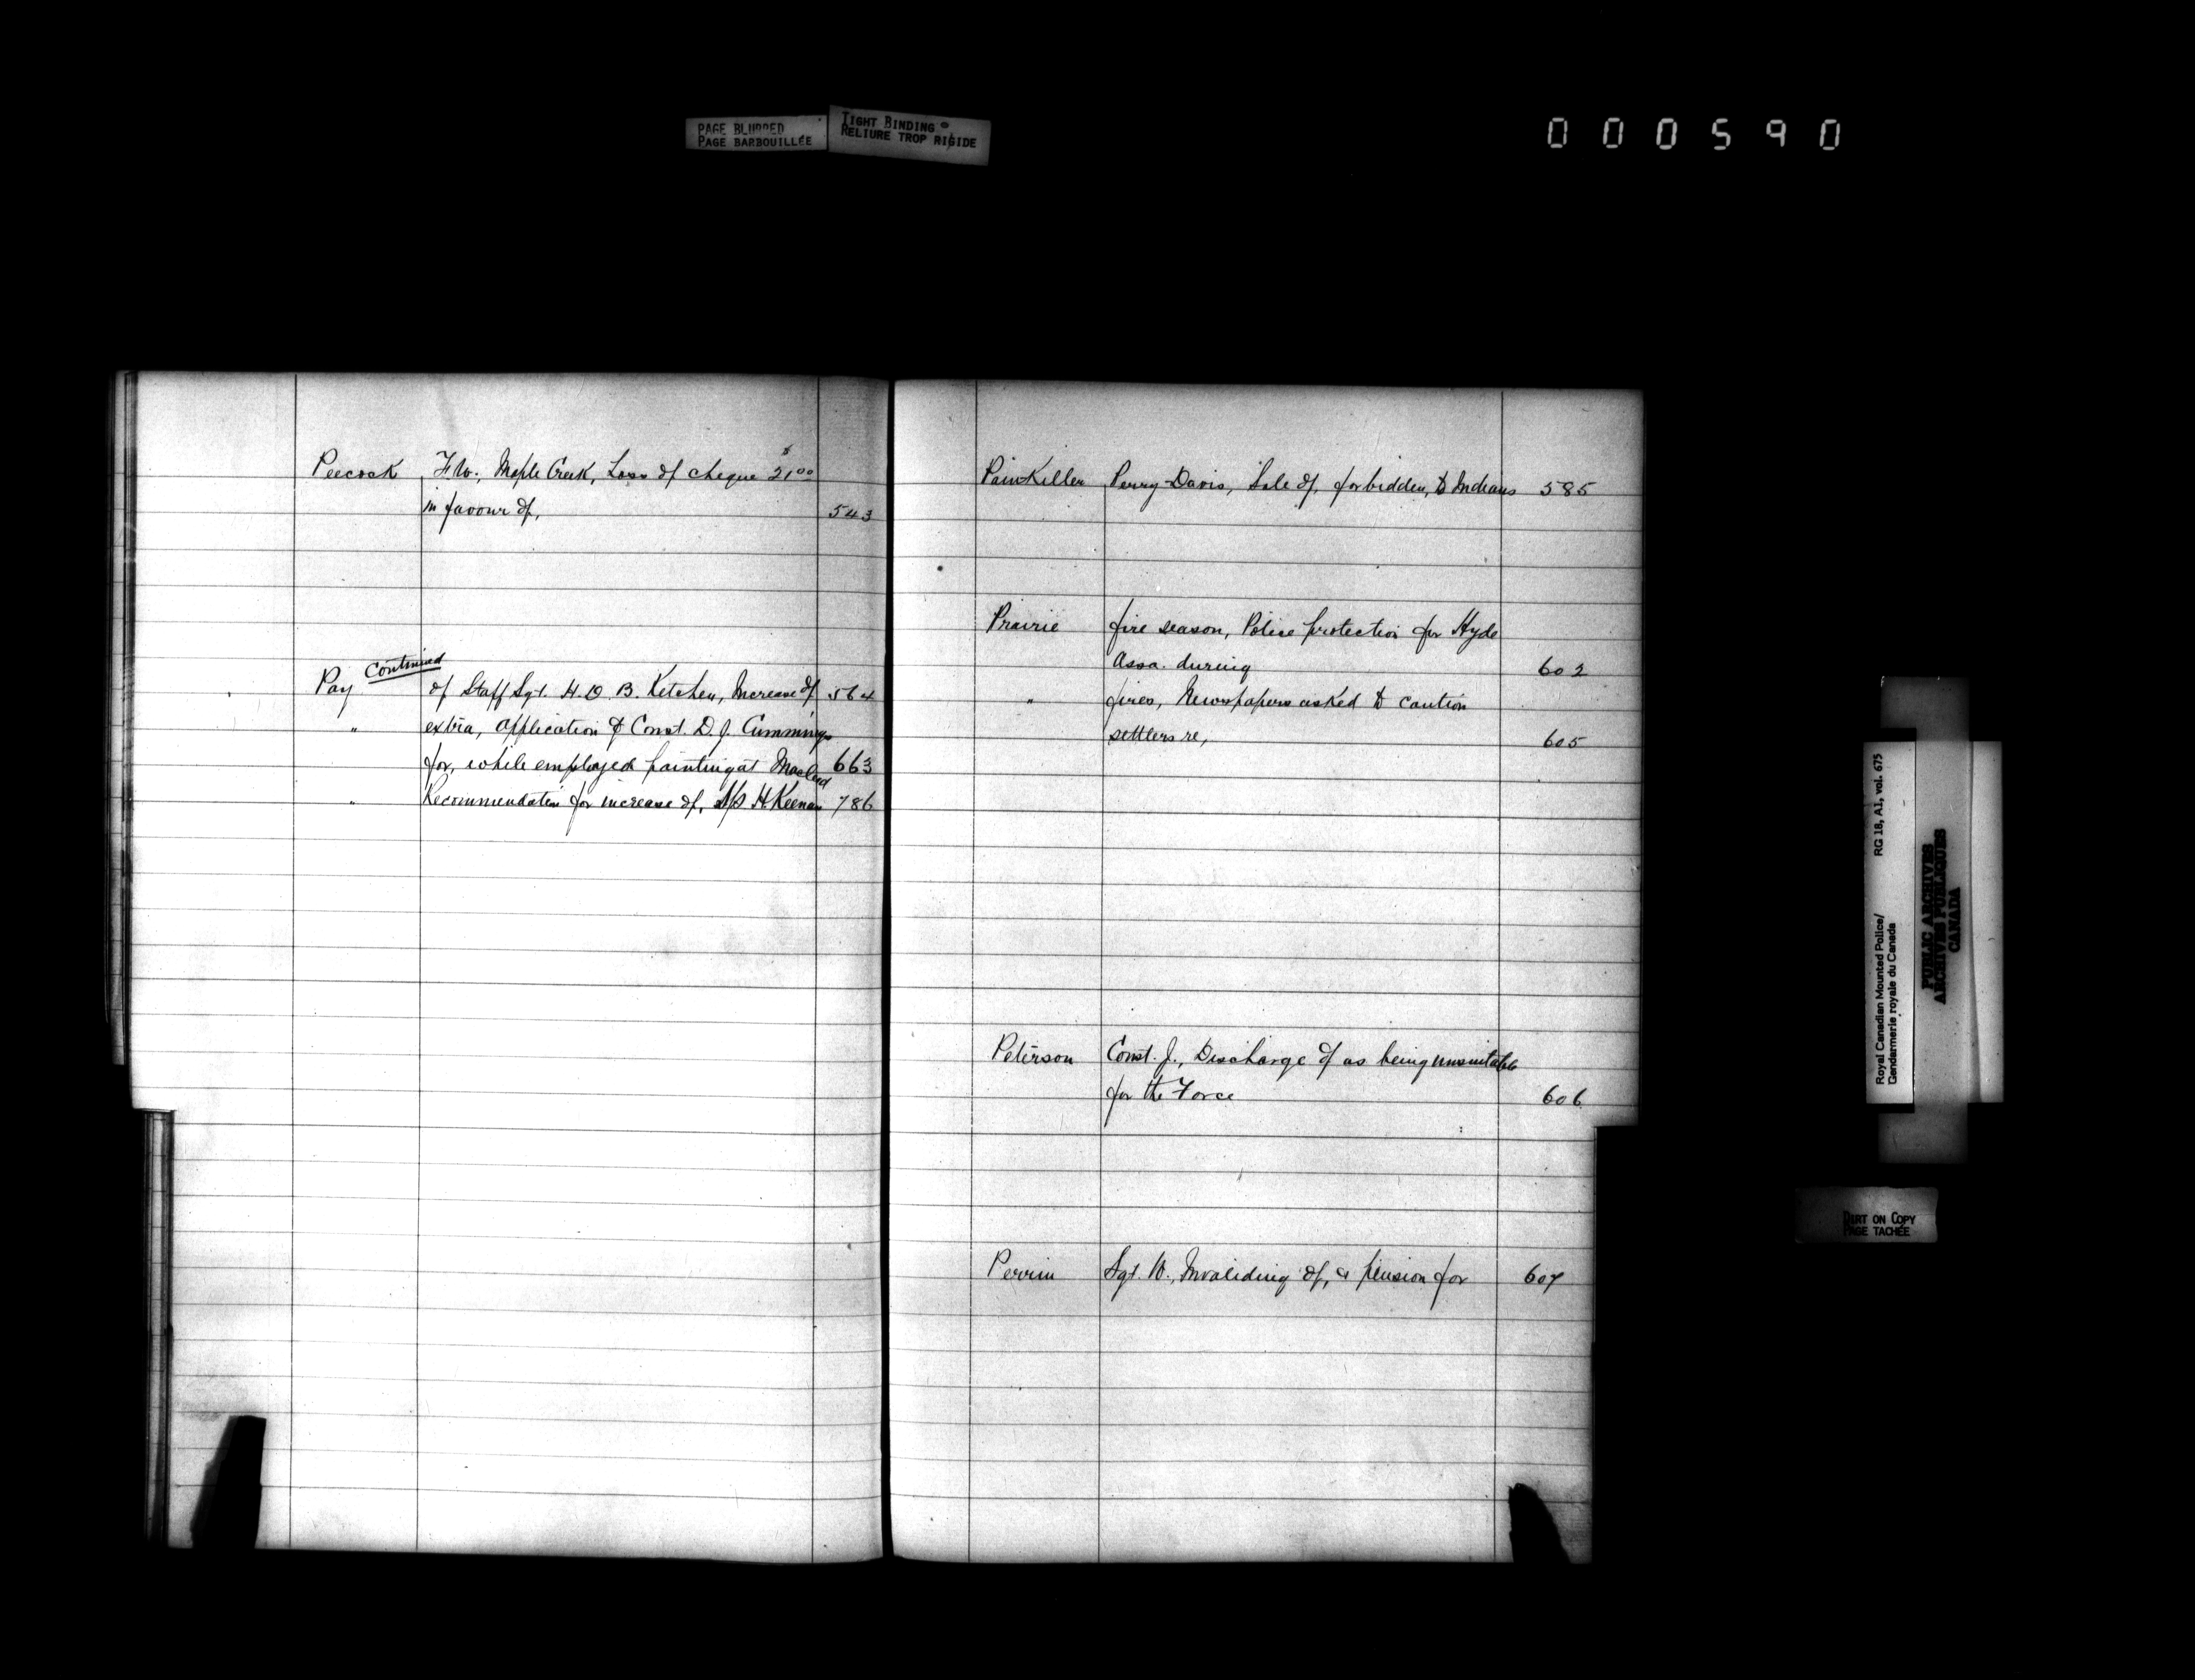 PAGE BLURRED
PAGE BARBOUILLÉE
TIGHT BINDING
RELIURE TROP RIGIDE
000590
Peecock F.W., Maple Creek, Loss of cheque $21.00
in favour of, 543
Pay Continued
of Staff Sgt. H.D.B. Ketchen, Increase of 564
" extra, application of Const. D.J. Cummings
for, while employed painting at Macleod 663
" Recommendation for increase of, S/S H. Keenan 786
PainKiller Perry Davis, Sale of, forbidden, to Indians 585
Prairie fire season, Police protection for Hyde
Assa. during 602
" fires, Newspapers asked to caution
settlers re, 605
Peterson Const. J., Discharge of as being unsuitable
for the Force 606
Perrin Sgt. W., Invaliding of, & pension for 607
Royal Canadian Mounted Police/ RG 18, A1, vol. 675
Gendarmerie royale du Canada
PUBLIC ARCHIVES
ARCHIVES PUBLIQUES
CANADA
DIRT ON COPY
PAGE TACHÉE